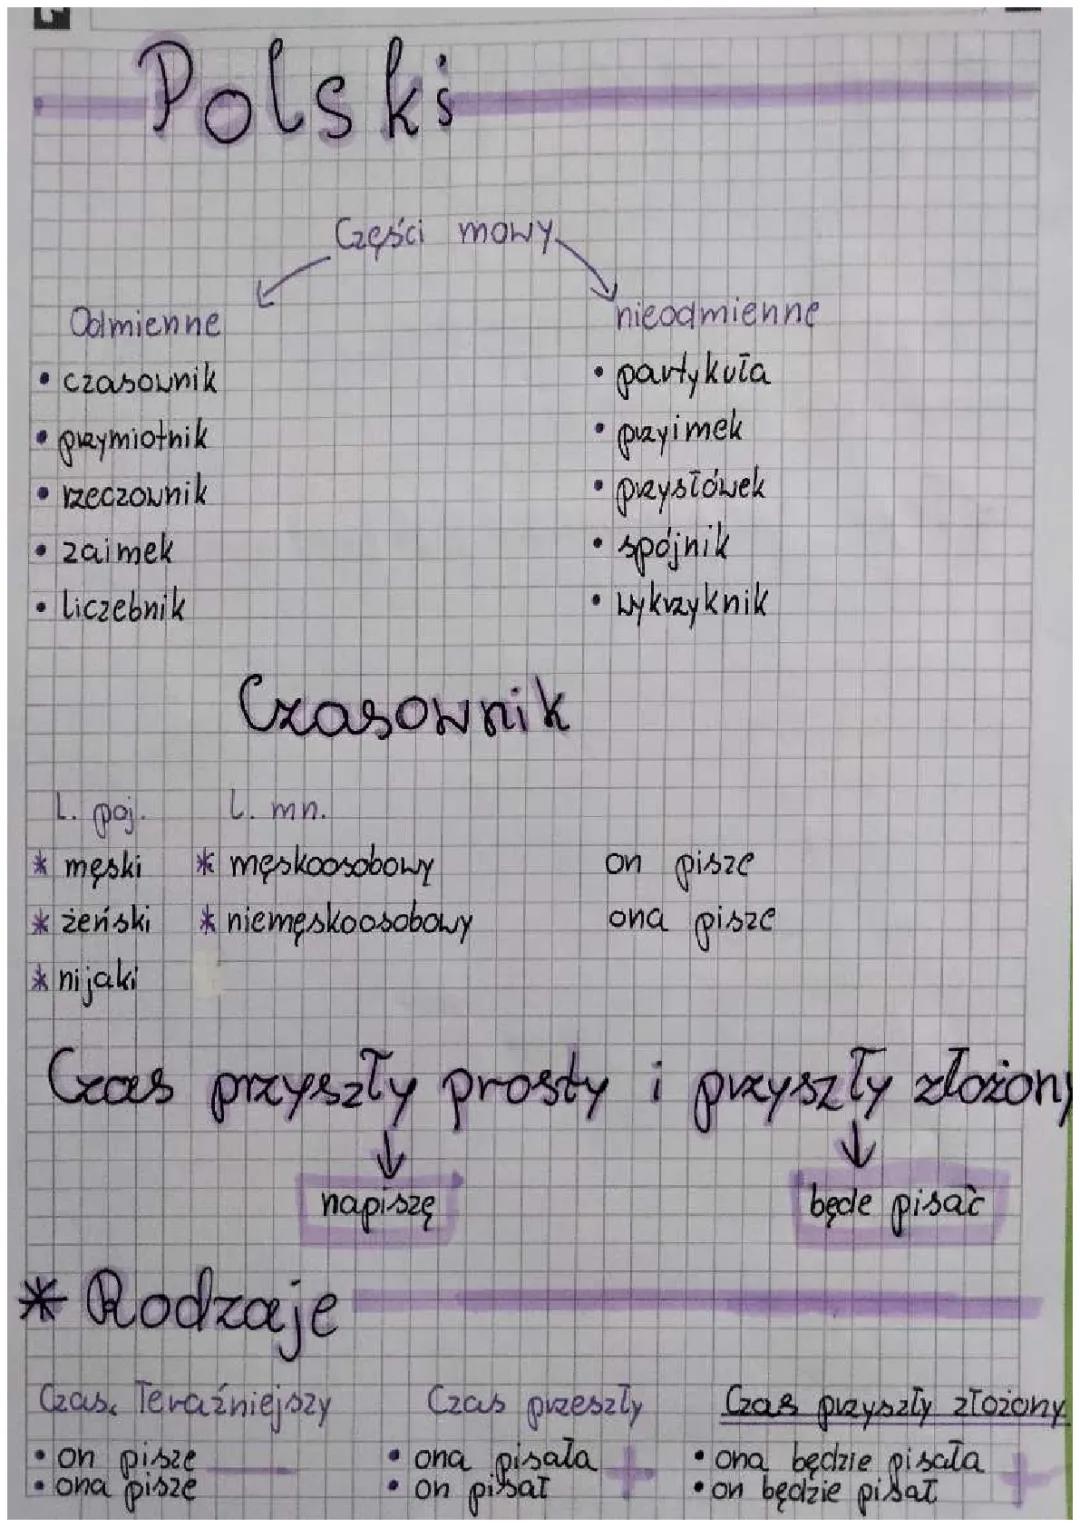 Polski
Części mowy
Odmienne
nieodmienne
• czasownik
• partykuła
• przymiotnik
• przyimek
• rzeczownik
• przysłówek
• zaimek
• spójnik
• liczebnik
• wykrzyknik
Czasownik
L. poj. L. mn.
* męski * męskoosobowy on pisze
* żeński * niemęskoosobowy ona pisze
* nijaki
Czas przyszły prosty i przyszły złożony
napiszę będe pisać
* Rodzaje
Czas Teraźniejszy Czas przeszły Czas przyszły złożony
• on pisze – • ona pisała + • ona będzie pisała +
• ona pisze • on pisał • on będzie pisał